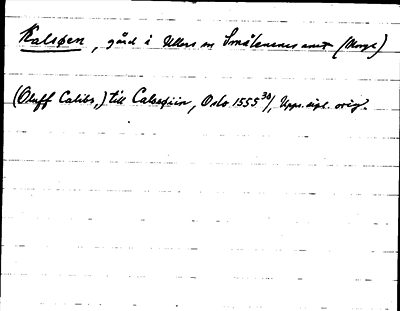 Kalsøen, gård i Ullens sn Smålenenes amt (Norge)
(Oluff Calibs,) till Calsøiin, Oslo 1555 30/, Upps. sigl. orig.